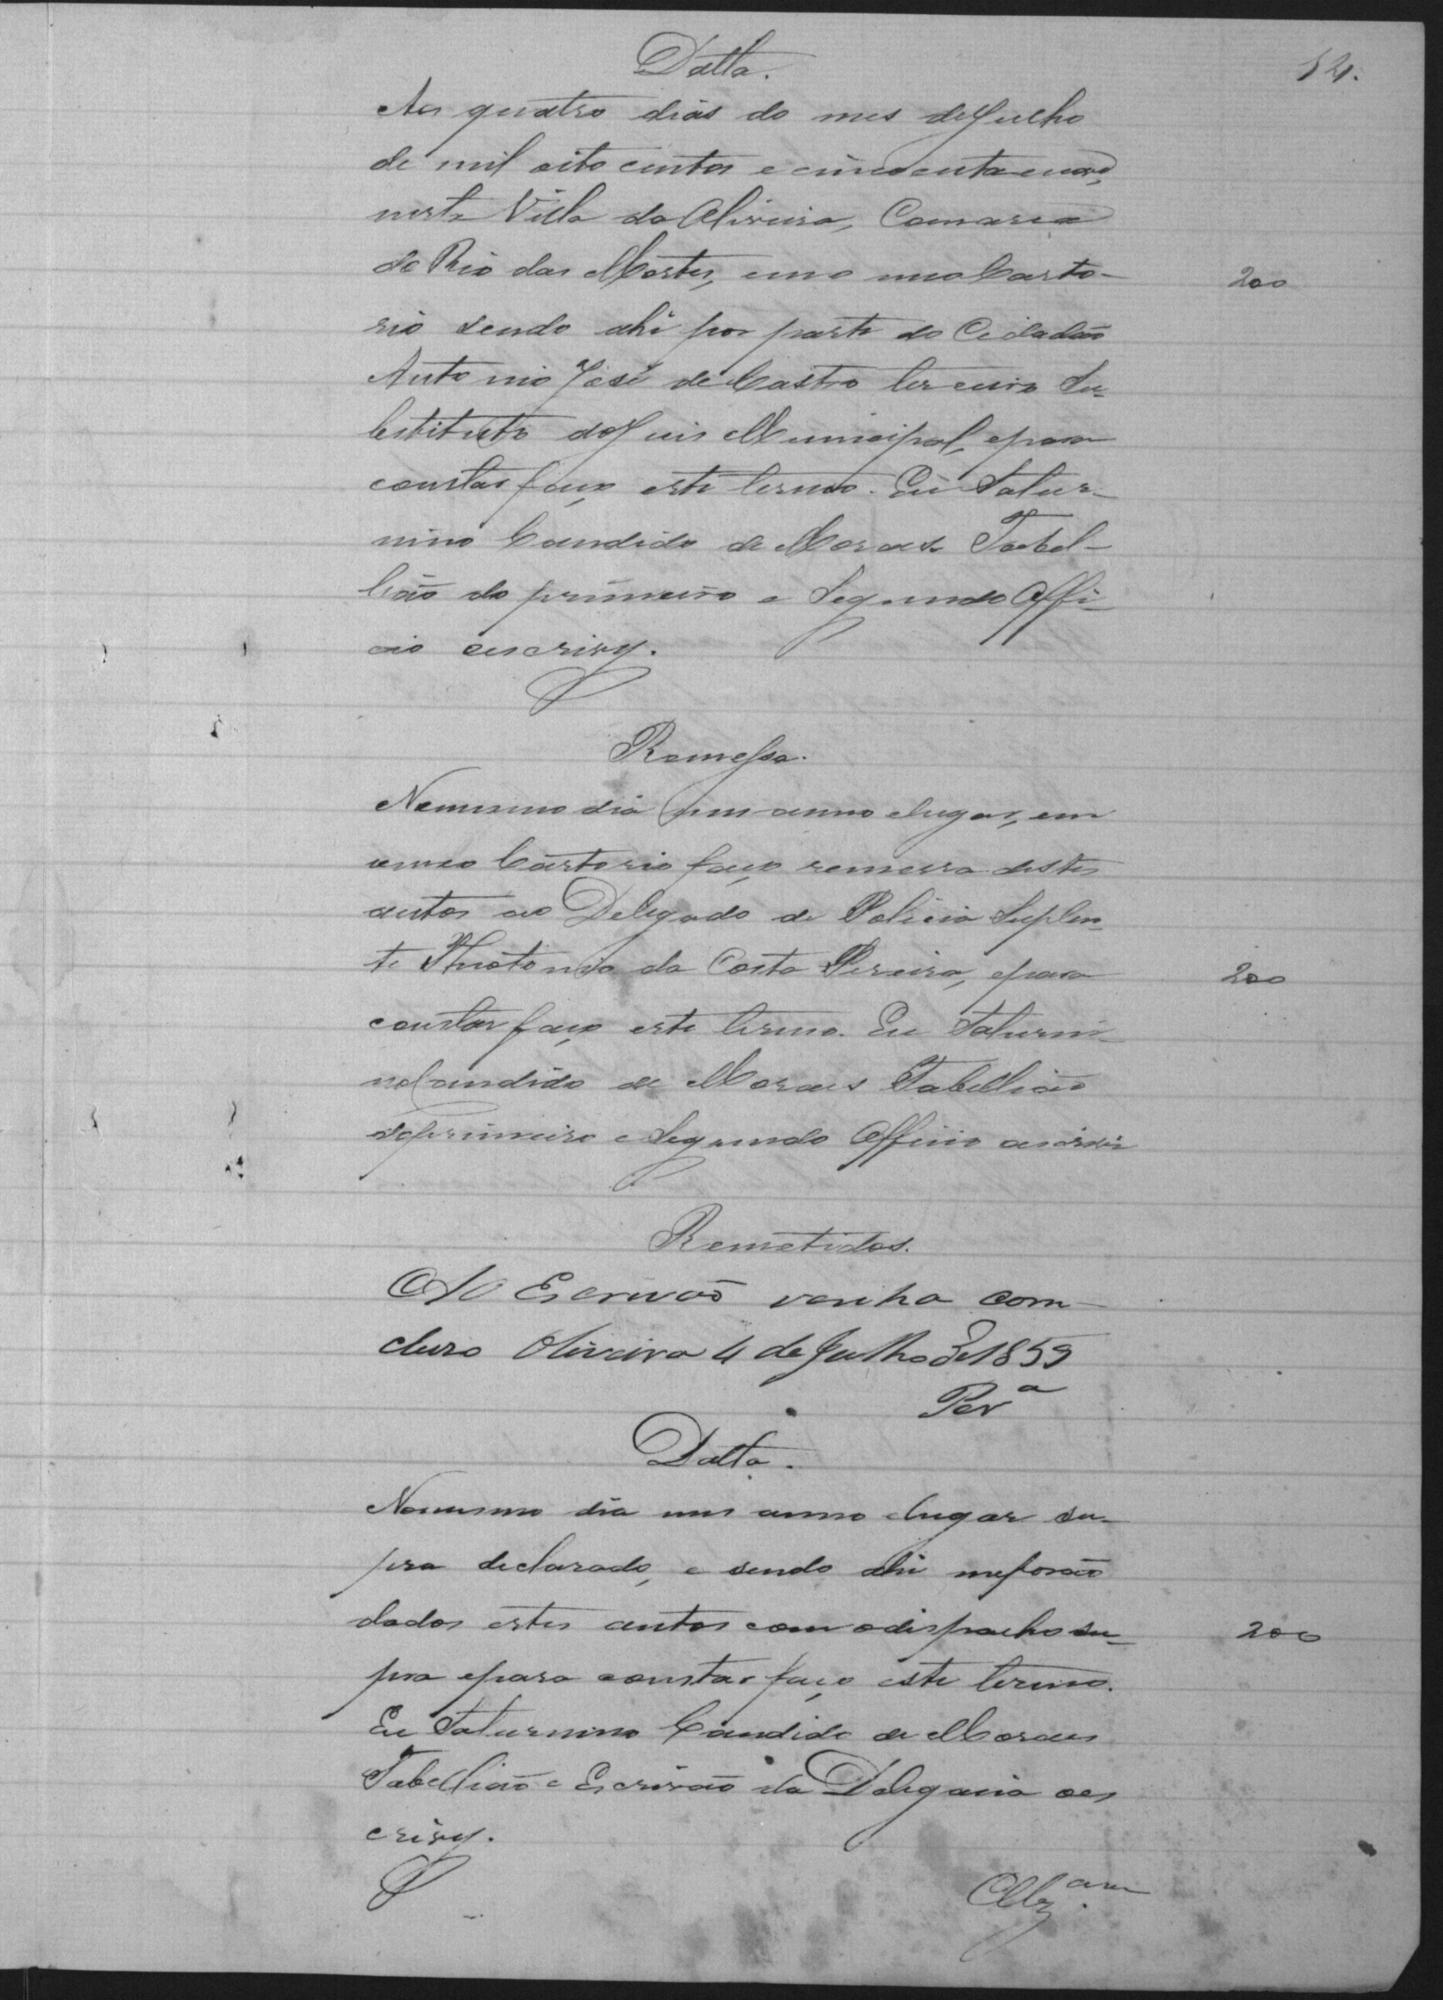 Datta.
Aos quatro dias do mes de Julho
de mil oito centos e cincoenta enove,
nesta Villa da Oliveira, Comarca
do Rio das Mortes, em o meo Carto-
200
rio sendo ahi por parte do Cidadão
Antonio José de Castro terceiro Su-
bstituto do Juis Municipal, epara
constar faço este termo. Eu Satur-
nino Candido de Moraes Tabel-
lião do primeiro e Segundo Offi-
cio escrivy.
Remessa.
Nomesmo dia mes anno elugar, em
o meo Cartorio faço remessa destes
autos ao Delegado de Policia Suplen-
te Theotonio da Costa Pereira, epara
200
constar faço este termo. Eu Saturni-
no Candido de Moraes Tabellião
doprimeiro e Segundo Officio
Remetidos.
O Escrivão venha com-
cluzo Oliveira 4 de Julho de 1859
Per.ª
Datta.
Nomesmo dia mes anno elugar su-
pra declarado, e sendo ahi meforão
dados estes autos com odispacho su-
200
pra epara constar faço este termo.
Eu Saturnino Candido de Moraes
Tabellião e Escrivão da Delegacia oes
crivy.